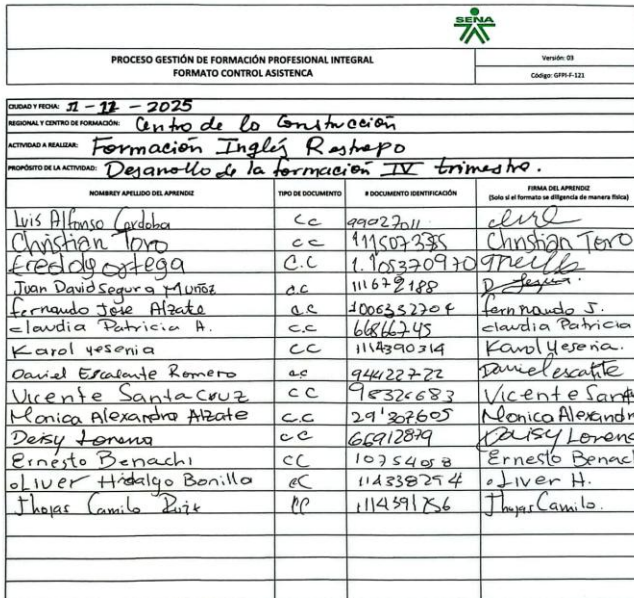 SENA
PROCESO GESTIÓN DE FORMACIÓN PROFESIONAL INTEGRAL
FORMATO CONTROL ASISTENCA
Versión: 03
Código: GFPI-F-121
CIUDAD Y FECHA: 11 - 11 - 2025
REGIONAL Y CENTRO DE FORMACIÓN: Centro de la Construcción
ACTIVIDAD A REALIZAR: Formación Inglés Restrepo
PROPÓSITO DE LA ACTIVIDAD: Desarrollo de la formación IV trimestre.
NOMBREY APELLIDO DEL APRENDIZ TIPO DE DOCUMENTO # DOCUMENTO IDENTIFICACIÓN FIRMA DEL APRENDIZ
(Solo si el formato se diligencia de manera física)
Luis Alfonso Cordoba CC 99027011
Christian Toro CC 111507335 Christian Toro
Freddy ortega C.C 1.105370970
Juan David Segura Muñoz C.C 111672188
fernando Jose Alzate C.C 1006352704 fernnando J.
claudia Patricia A. C.C 66866745 claudia Patricia
Karol yesenia CC 1114390314 Karol Yesenia.
Daniel Escalante Romero CC 94422722 Daniel escalte
Vicente Santacruz CC 98326683 Vicente Sant
Monica Alexandra Alzate C.C 29'307605 Monica Alexandr
Deisy Lorena CC 66912879 Deisy Lorena
Ernesto Benachi CC 10754058 Ernesto Benach
oLiver Hidalgo Bonilla CC 1143382794 oLiver H.
Thojas Camilo Ruiz CC 1114391756 Thojas Camilo.